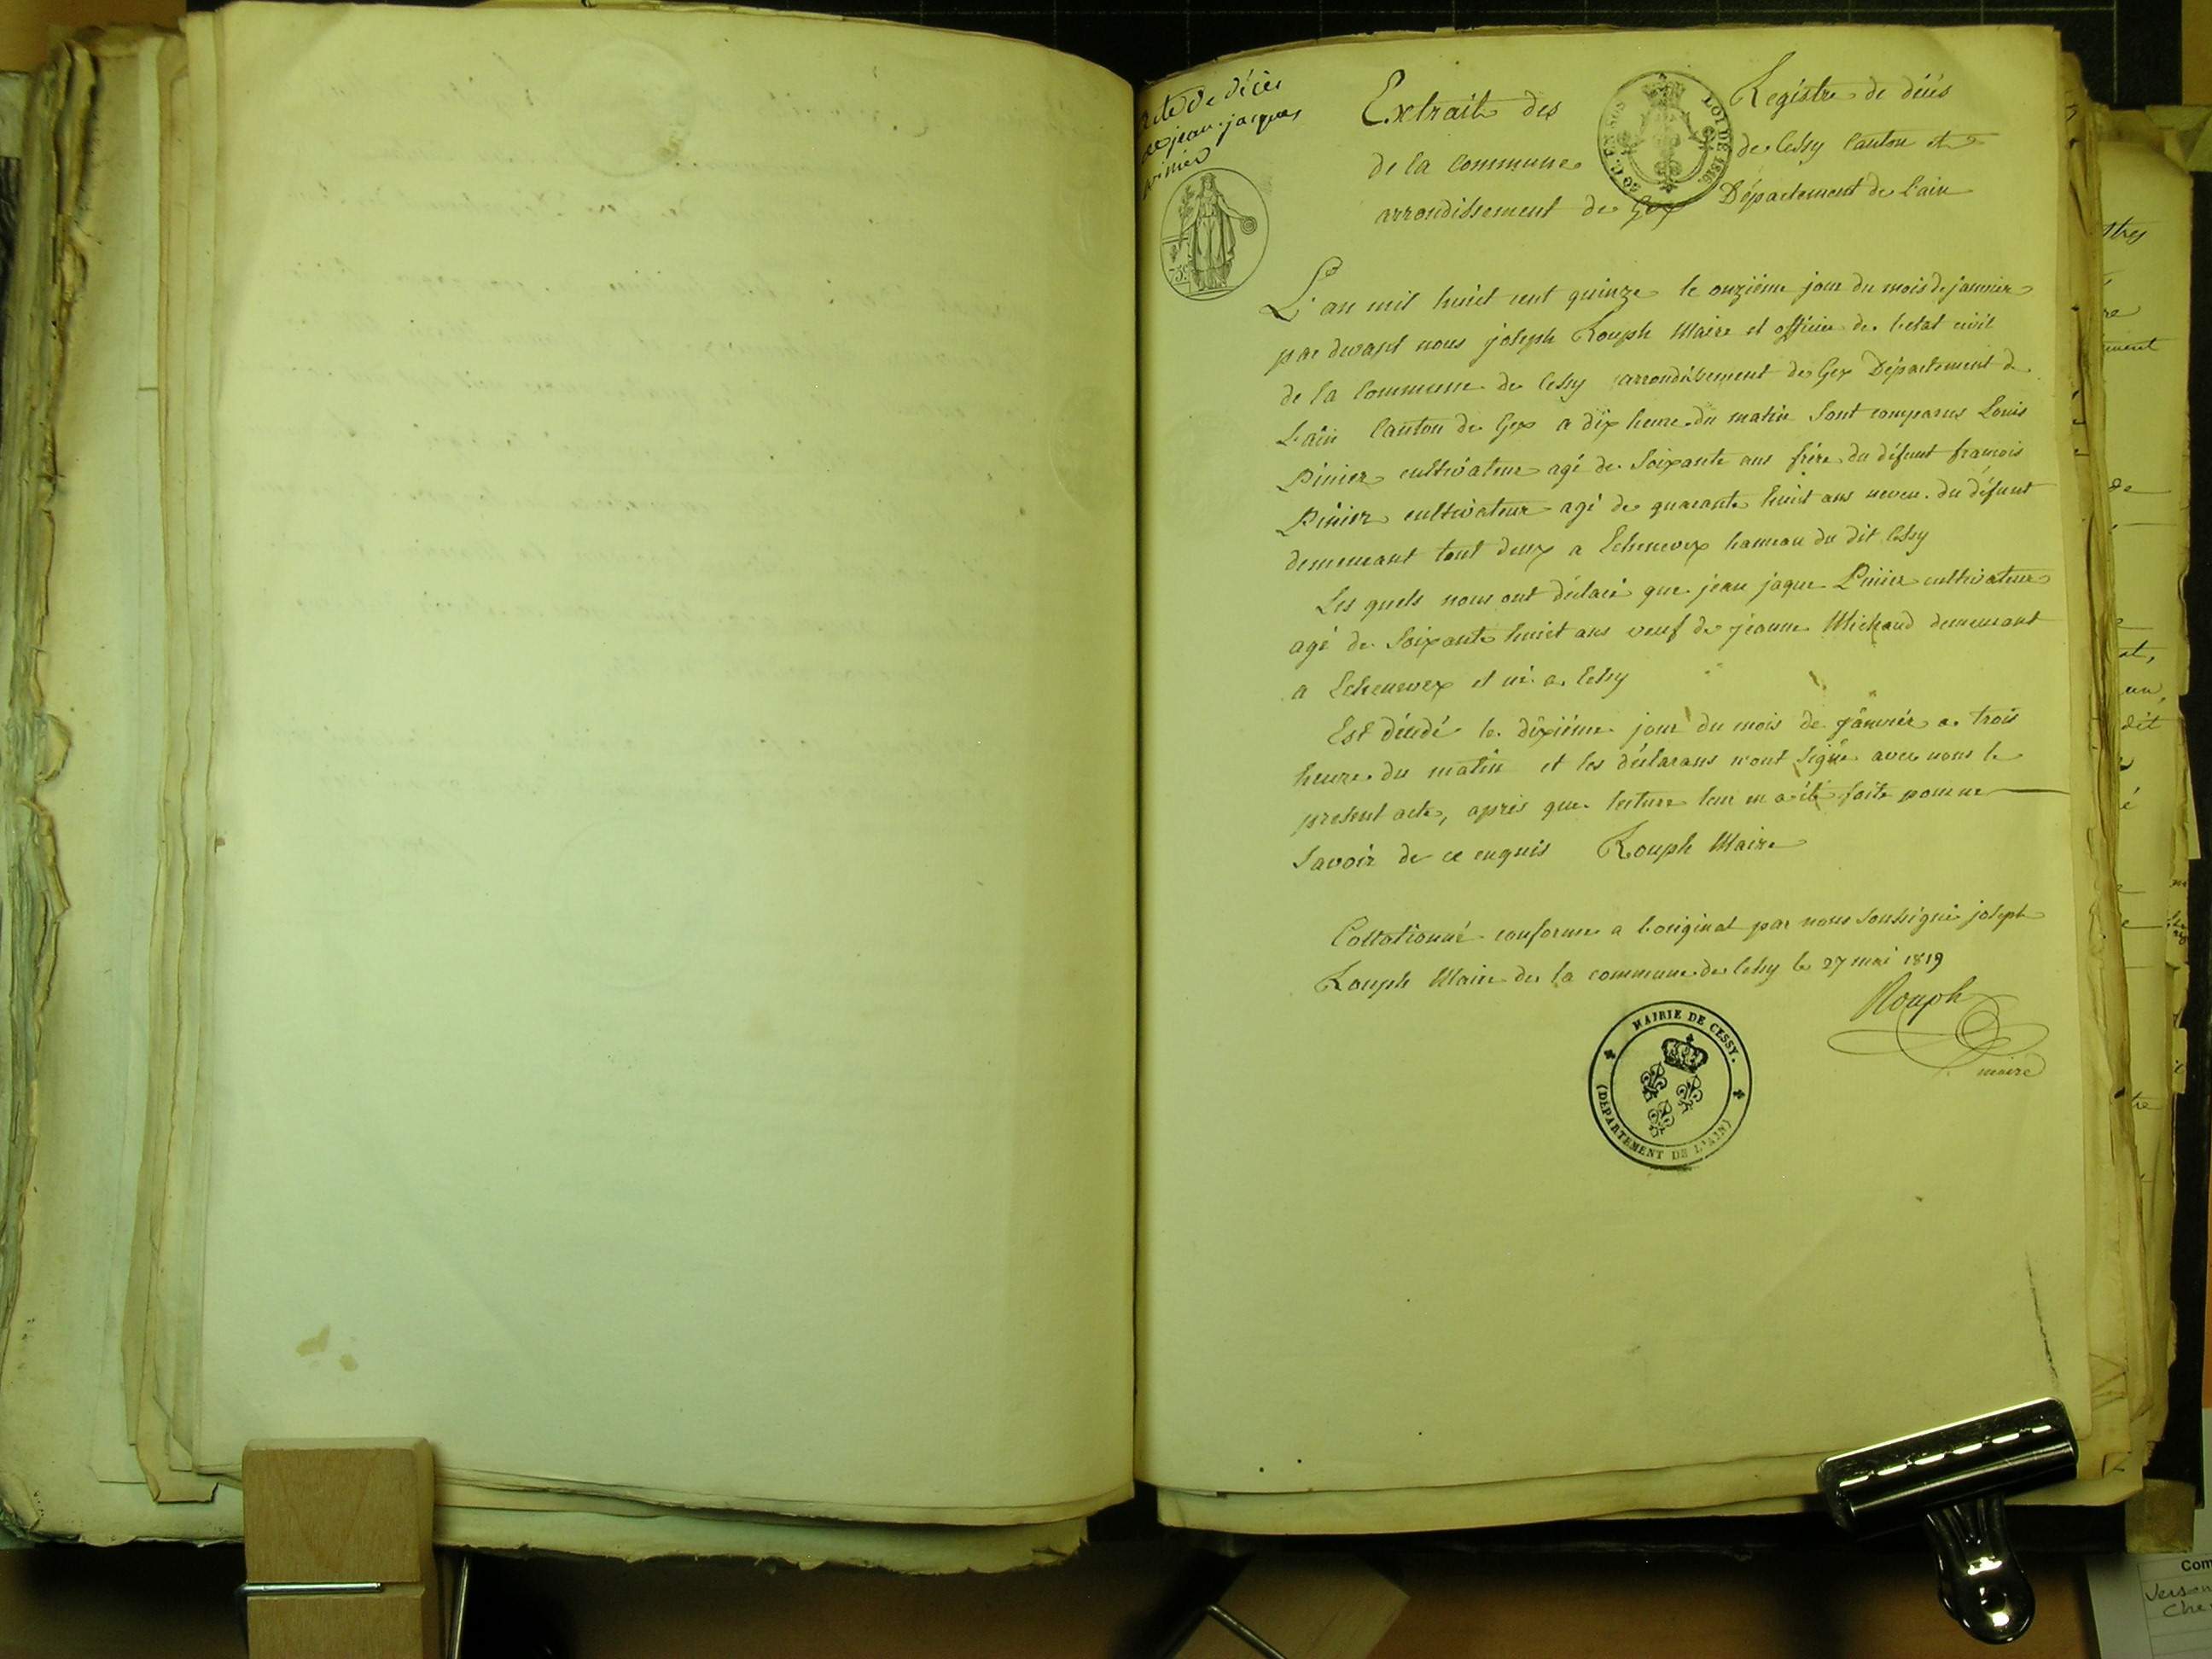 acte de décès
de jean-jacques
pinier
Extrait des Registre de décés
de la Commune de Cessy Canton et
arrondissement de Gex Département de l'ain
LOI DE 1816
75c
L'an mil huict cent quinze le onzième jour du mois de janvier
par devant nous joseph Rouph Maire et officier de l'etat civil
de la Commune de Cessy arrondissement de Gex Département de
L'ain Canton de Gex a dix heure du matin Sont comparus Louis
Pinier cultivateur agé de Soixante ans frére du défunt francois
Pinier cultivateur agé de quarante huict ans neveu du défunt
demeurant tout deux a Echenevex hameau du dit Cessy
Les quels nous ont déclaré que jean jaque Pinier cultivateur
agé de Soixante huict ans veuf de jeanne Michaud demeurant
a Echenevex et né a Cessy
Est décédé le dixiéme jour du mois de janvier a trois
heure du matin et les déclarans n'ont signé avec nous le
present acte, aprés que lecture leur en a été faite pour ne
Savoir de ce enquis Rouph Maire
Collationné conforme a l'original par nous soussigné joseph
Rouph Maire de la commune de Cessy le 27 mai 1819
Rouph
maire
MAIRIE DE CESSY.
(DÉPARTEMENT DE L'AIN)
stres
re
ement
de
at,
un,
dit
é
tre
Com
Verson
Che